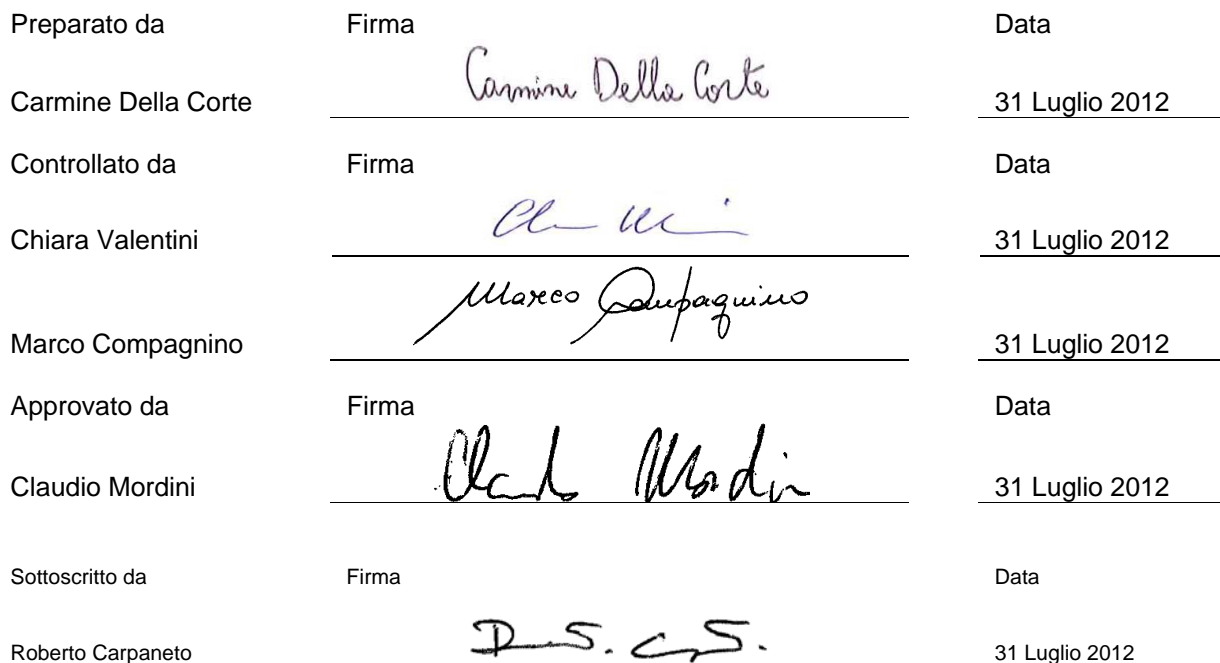 Preparato da Firma Data
Carmine Della Corte Carmine Della Corte 31 Luglio 2012
Controllato da Firma Data
Chiara Valentini 31 Luglio 2012
Marco Compagnino Marco Compagnino 31 Luglio 2012
Approvato da Firma Data
Claudio Mordini Claudio Mordini 31 Luglio 2012
Sottoscritto da Firma Data
Roberto Carpaneto 31 Luglio 2012